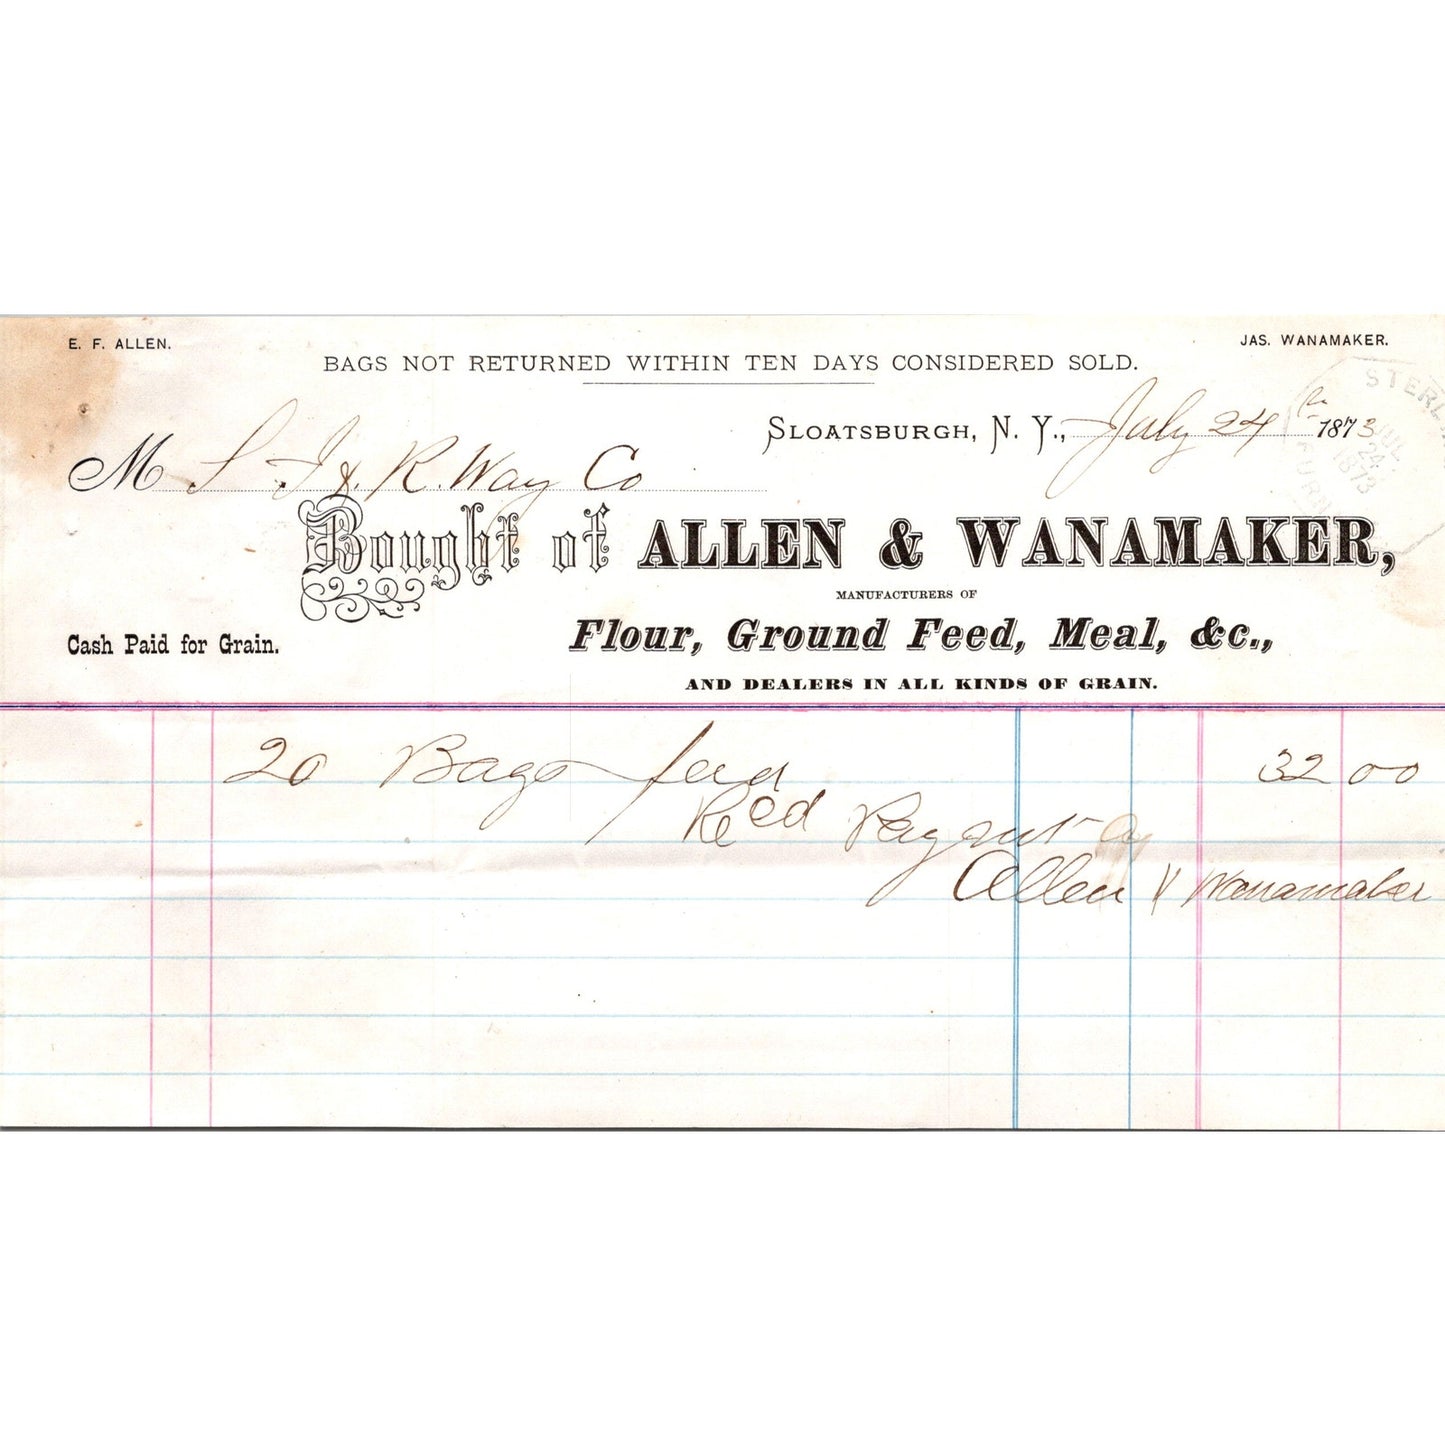 E. F. ALLEN.
JAS. WANAMAKER.
BAGS NOT RETURNED WITHIN TEN DAYS CONSIDERED SOLD.
SLOATSBURGH, N. Y., July 24 1873
M S I & R. Way Co
Bought of ALLEN & WANAMAKER,
MANUFACTURERS OF
Cash Paid for Grain.
Flour, Ground Feed, Meal, &c.,
AND DEALERS IN ALL KINDS OF GRAIN.
20 Bags feed 32 00
Recd Payment
Allen & Wanamaker
JUL
24
1873